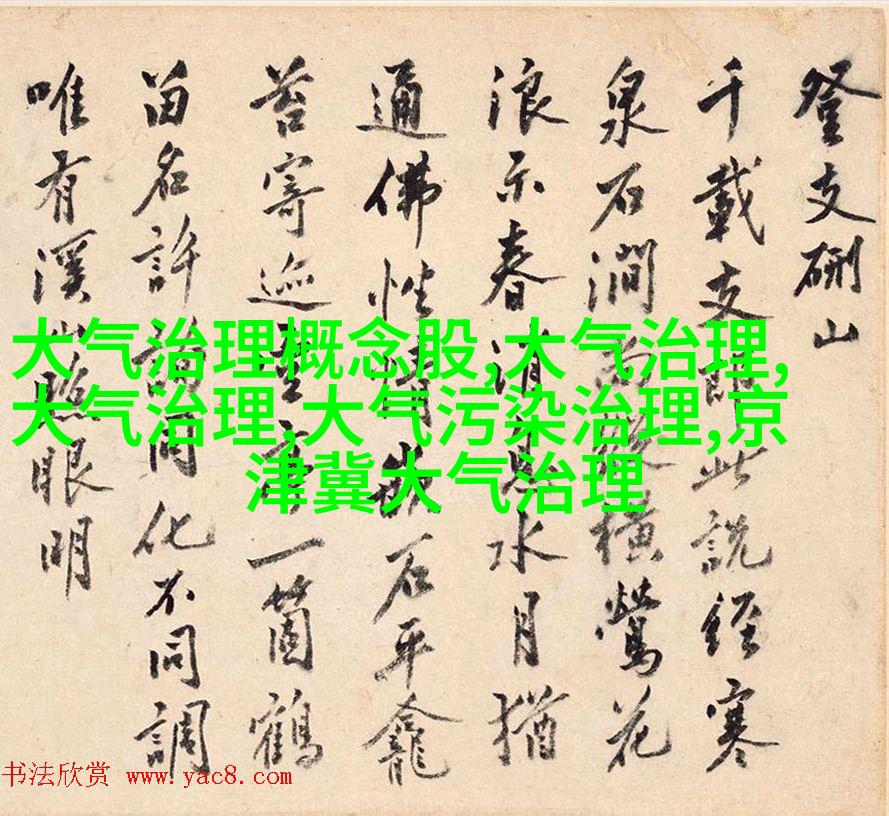 登支硎山
千載支師此説經寒
泉石澗尚縱橫鶯花
浪示春消息水月猶
通佛性情石平龕
苔寄迹亭一箇鶴
留名許詢同化不同調
唯有溪山照眼明
大气治理概念股,大气治理,
大气治理,大气污染治理,京
津冀大气治理
书法欣赏 www.yac8.com